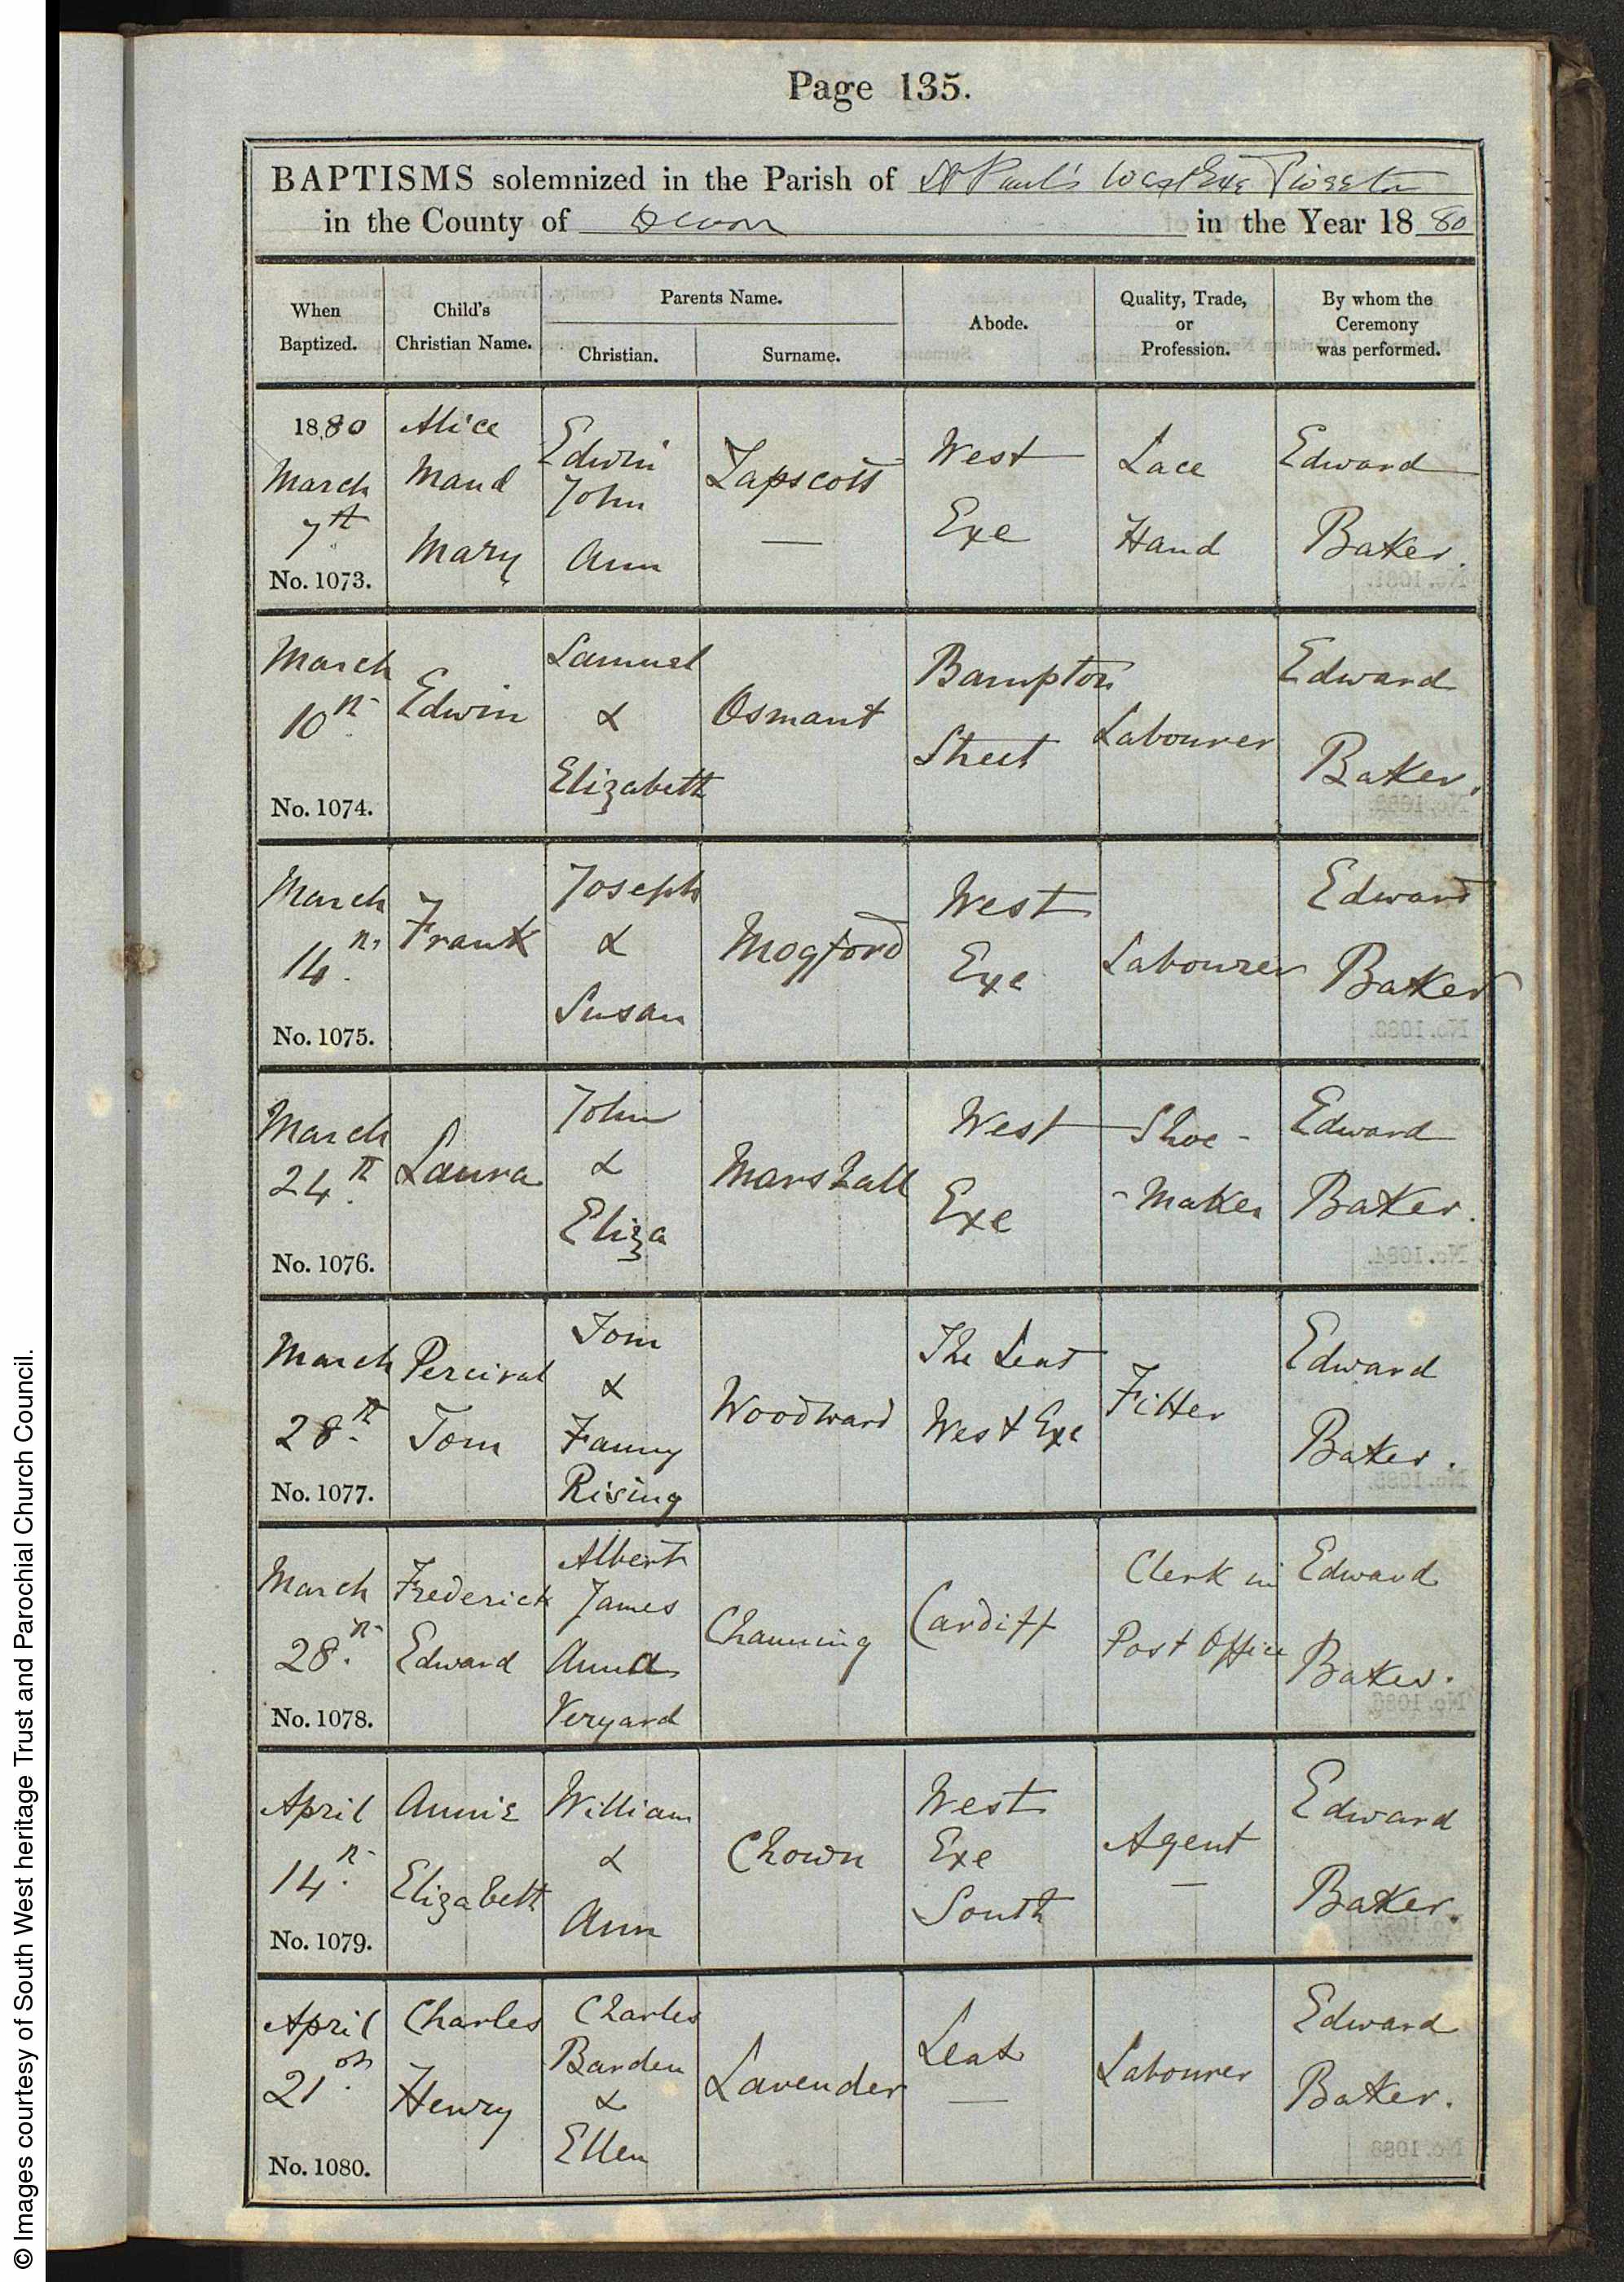 Page 135.
BAPTISMS solemnized in the Parish of St Paul's West Exe Tiverton
in the County of Devon in the Year 18 80
When Baptized.
Child's Christian Name.
Parents Name.
Christian.
Surname.
Abode.
Quality, Trade, or Profession.
By whom the Ceremony was performed.
1880 March 7th
No. 1073.
Alice Maud Mary
Edwin John Ann
Lapscott —
West Exe
Lace Hand
Edward Baker.
March 10th
No. 1074.
Edwin
Samuel & Elizabeth
Osmant
Bampton Street
Labourer
Edward Baker.
March 14th
No. 1075.
Frank
Joseph & Susan
Mogford
West Exe
Labourer
Edward Baker
March 24th
No. 1076.
Laura
John & Eliza
Marshall
West Exe
Shoe - - Maker
Edward Baker.
March 28th
No. 1077.
Percival Tom
Tom & Fanny Rising
Woodward
The Leat West Exe
Fitter
Edward Baker.
March 28th
No. 1078.
Frederick Edward
Albert James Anna Veryard
Channing
Cardiff
Clerk in Post Office
Edward Baker.
April 14th
No. 1079.
Annie Elizabeth
William & Ann
Chown
West Exe South
Agent —
Edward Baker.
April 21st
No. 1080.
Charles Henry
Charles Barden & Ellen
Lavender
Leat —
Labourer
Edward Baker.
© Images courtesy of South West heritage Trust and Parochial Church Council.